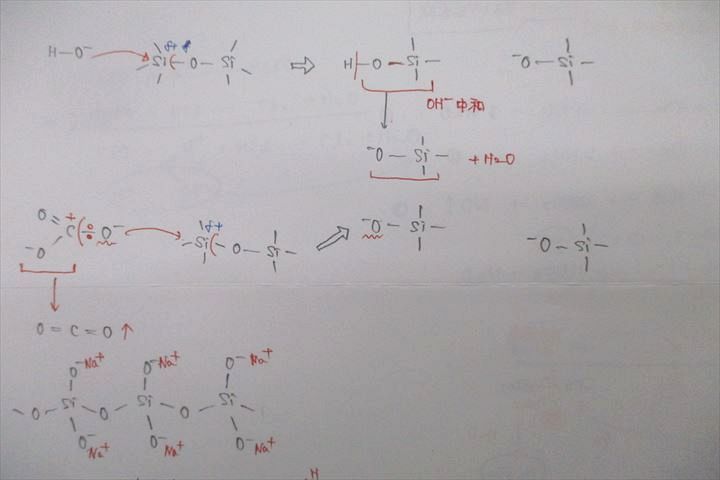 H-O⁻ Si δ+ O Si ⇒ H O Si ⁻O Si
OH⁻中和
⁻O Si +H₂O
O=C ⁺ O⁻ ⁻O Si δ+ O Si ⇒ ⁻O Si ⁻O Si
O=C=O↑
O⁻Na⁺ O⁻Na⁺ O⁻Na⁺
-O-Si-O-Si-O-Si-
O⁻Na⁺ O⁻Na⁺ O⁻Na⁺
H